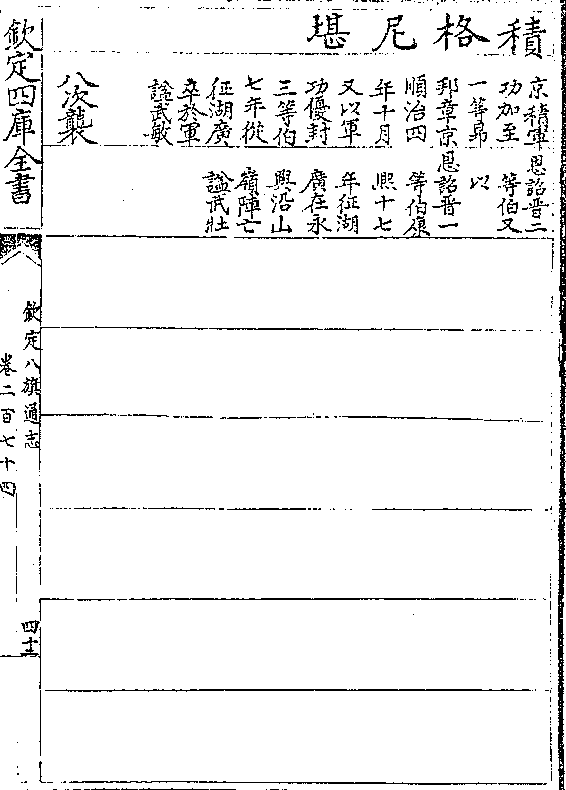 積格尼堪
京積軍
功加至
一等昂
邦章京
順治四
年十月
又以軍
功優封
三等伯
七年從
征湖廣
卒於軍
諡武敏
八次襲
恩詔晋二
等伯又
以
恩詔晋一
等伯康
熙十七
年征湖
廣在永
興沿山
嶺陣亡
諡武壯
欽定四庫全書
欽定八旗通志
卷二百七十四
四十二